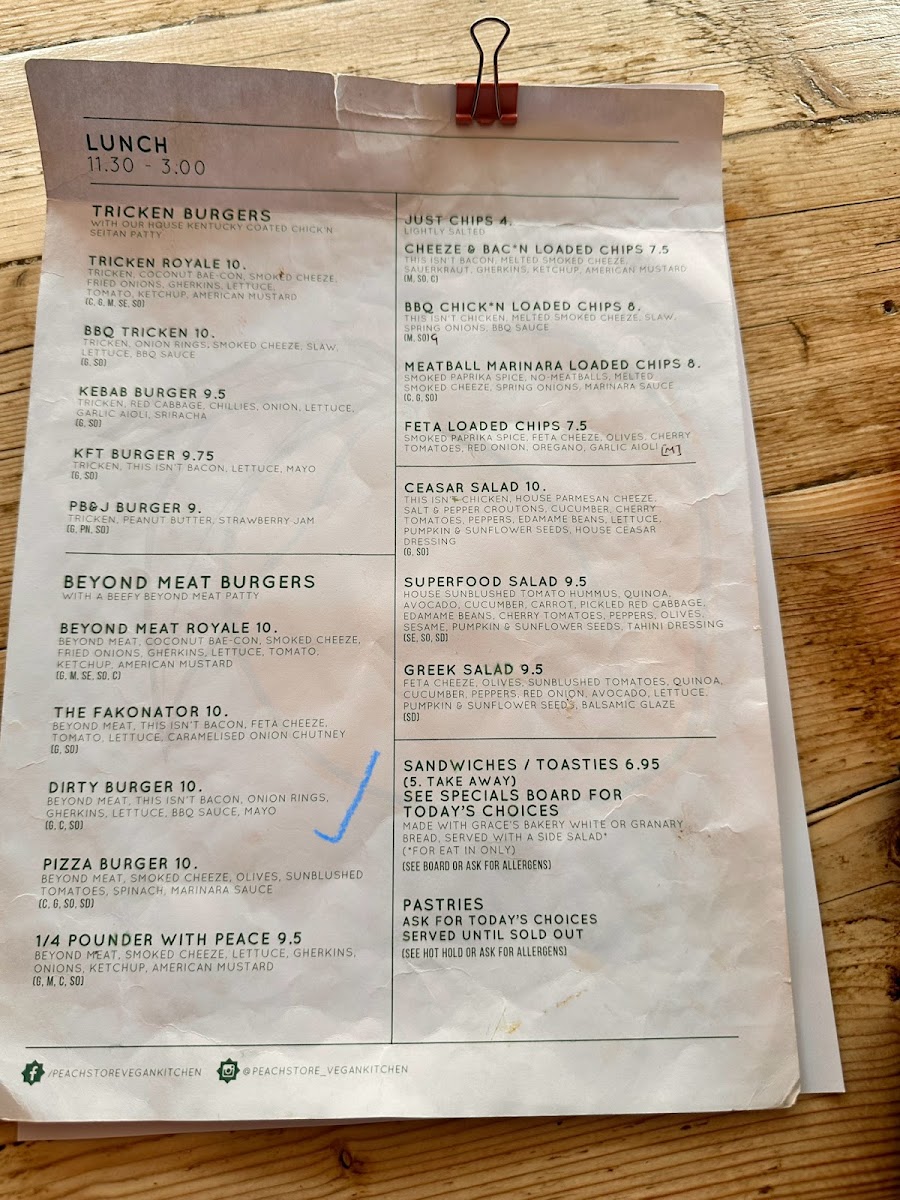 LUNCH
11.30 - 3:00
TRICKEN BURGERS
WITH OUR HOUSE KENTUCKY COATED CHICK'N
SEITAN PATTY
TRICKEN ROYALE 10.
TRICKEN, COCONUT BAE-CON, SMOKED CHEEZE,
FRIED ONIONS, GHERKINS, LETTUCE,
TOMATO, KETCHUP, AMERICAN MUSTARD
(C, G, M, SE, SO)
BBQ TRICKEN 10.
TRICKEN, ONION RINGS, SMOKED CHEEZE, SLAW,
LETTUCE, BBQ SAUCE
(G, SO)
KEBAB BURGER 9.5
TRICKEN, RED CABBAGE, CHILLIES, ONION, LETTUCE,
GARLIC AIOLI, SRIRACHA
(G, SO)
KFT BURGER 9.75
TRICKEN, THIS ISN'T BACON, LETTUCE, MAYO
(G, SO)
PB&J BURGER 9.
TRICKEN, PEANUT BUTTER, STRAWBERRY JAM
(G, PN, SO)
BEYOND MEAT BURGERS
WITH A BEEFY BEYOND MEAT PATTY
BEYOND MEAT ROYALE 10.
BEYOND MEAT, COCONUT BAE-CON, SMOKED CHEEZE,
FRIED ONIONS, GHERKINS, LETTUCE, TOMATO,
KETCHUP, AMERICAN MUSTARD
(G, M, SE, SO, C)
THE FAKONATOR 10.
BEYOND MEAT, THIS ISN'T BACON, FETA CHEEZE,
TOMATO, LETTUCE, CARAMELISED ONION CHUTNEY
(G, SO)
DIRTY BURGER 10.
BEYOND MEAT, THIS ISN'T BACON, ONION RINGS,
GHERKINS, LETTUCE, BBQ SAUCE, MAYO
(G, C, SO)
PIZZA BURGER 10.
BEYOND MEAT, SMOKED CHEEZE, OLIVES, SUNBLUSHED
TOMATOES, SPINACH, MARINARA SAUCE
(C, G, SO, SD)
1/4 POUNDER WITH PEACE 9.5
BEYOND MEAT, SMOKED CHEEZE, LETTUCE, GHERKINS,
ONIONS, KETCHUP, AMERICAN MUSTARD
(G, M, C, SO)
JUST CHIPS 4.
LIGHTLY SALTED
CHEEZE & BAC*N LOADED CHIPS 7.5
THIS ISN'T BACON, MELTED SMOKED CHEEZE,
SAUERKRAUT, GHERKINS, KETCHUP, AMERICAN MUSTARD
(M, SO, C)
BBQ CHICK*N LOADED CHIPS 8.
THIS ISN'T CHICKEN, MELTED SMOKED CHEEZE, SLAW,
SPRING ONIONS, BBQ SAUCE
(M, SO) G
MEATBALL MARINARA LOADED CHIPS 8.
SMOKED PAPRIKA SPICE, NO-MEATBALLS, MELTED
SMOKED CHEEZE, SPRING ONIONS, MARINARA SAUCE
(C, G, SO)
FETA LOADED CHIPS 7.5
SMOKED PAPRIKA SPICE, FETA CHEEZE, OLIVES, CHERRY
TOMATOES, RED ONION, OREGANO, GARLIC AIOLI [M]
CEASAR SALAD 10.
THIS ISN'T CHICKEN, HOUSE PARMESAN CHEEZE,
SALT & PEPPER CROUTONS, CUCUMBER, CHERRY
TOMATOES, PEPPERS, EDAMAME BEANS, LETTUCE,
PUMPKIN & SUNFLOWER SEEDS, HOUSE CEASAR
DRESSING
(G, SO)
SUPERFOOD SALAD 9.5
HOUSE SUNBLUSHED TOMATO HUMMUS, QUINOA,
AVOCADO, CUCUMBER, CARROT, PICKLED RED CABBAGE,
EDAMAME BEANS, CHERRY TOMATOES, PEPPERS, OLIVES,
SESAME, PUMPKIN & SUNFLOWER SEEDS, TAHINI DRESSING
(SE, SO, SD)
GREEK SALAD 9.5
FETA CHEEZE, OLIVES, SUNBLUSHED TOMATOES, QUINOA,
CUCUMBER, PEPPERS, RED ONION, AVOCADO, LETTUCE,
PUMPKIN & SUNFLOWER SEEDS, BALSAMIC GLAZE
(SD)
SANDWICHES / TOASTIES 6.95
(5. TAKE AWAY)
SEE SPECIALS BOARD FOR
TODAY'S CHOICES
MADE WITH GRACE'S BAKERY WHITE OR GRANARY
BREAD, SERVED WITH A SIDE SALAD*
(*FOR EAT IN ONLY)
(SEE BOARD OR ASK FOR ALLERGENS)
PASTRIES
ASK FOR TODAY'S CHOICES
SERVED UNTIL SOLD OUT
(SEE HOT HOLD OR ASK FOR ALLERGENS)
/PEACHSTOREVEGANKITCHEN
@PEACHSTORE_VEGANKITCHEN